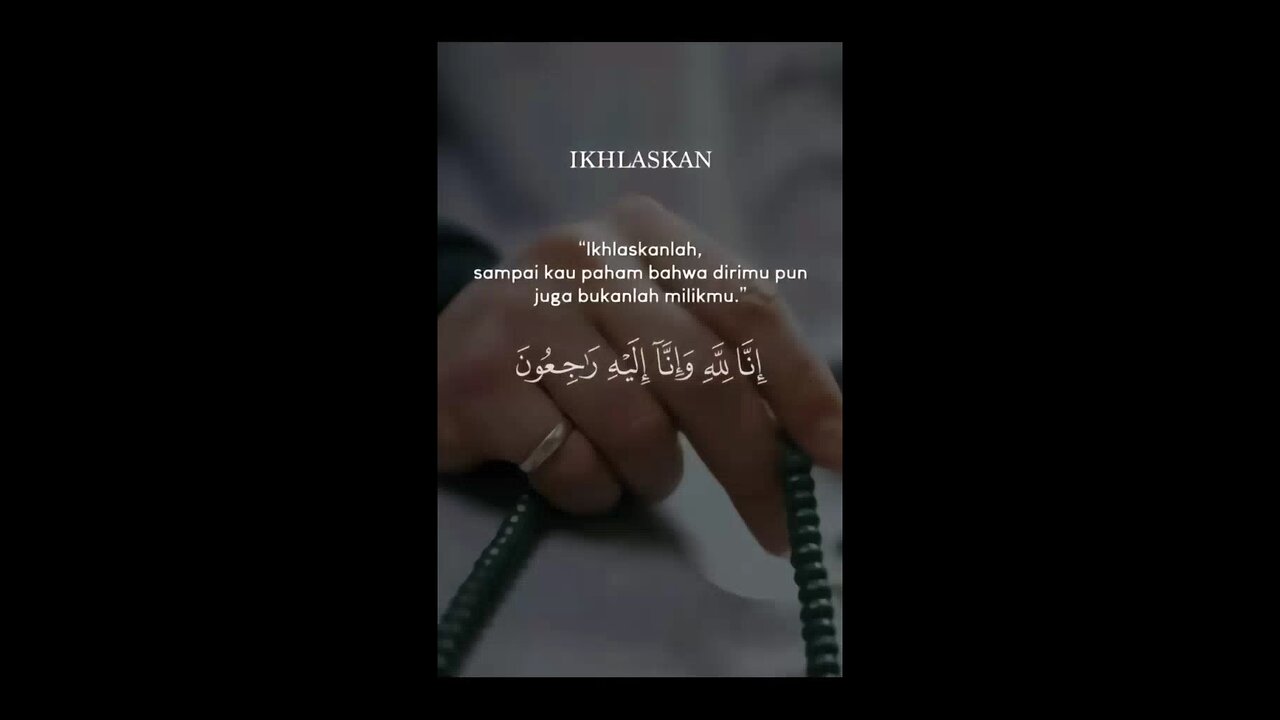 IKHLASKAN
“Ikhlaskanlah,
sampai kau paham bahwa dirimu pun
juga bukanlah milikmu.”
إِنَّا لِلَّهِ وَإِنَّآ إِلَيْهِ رَٰجِعُونَ